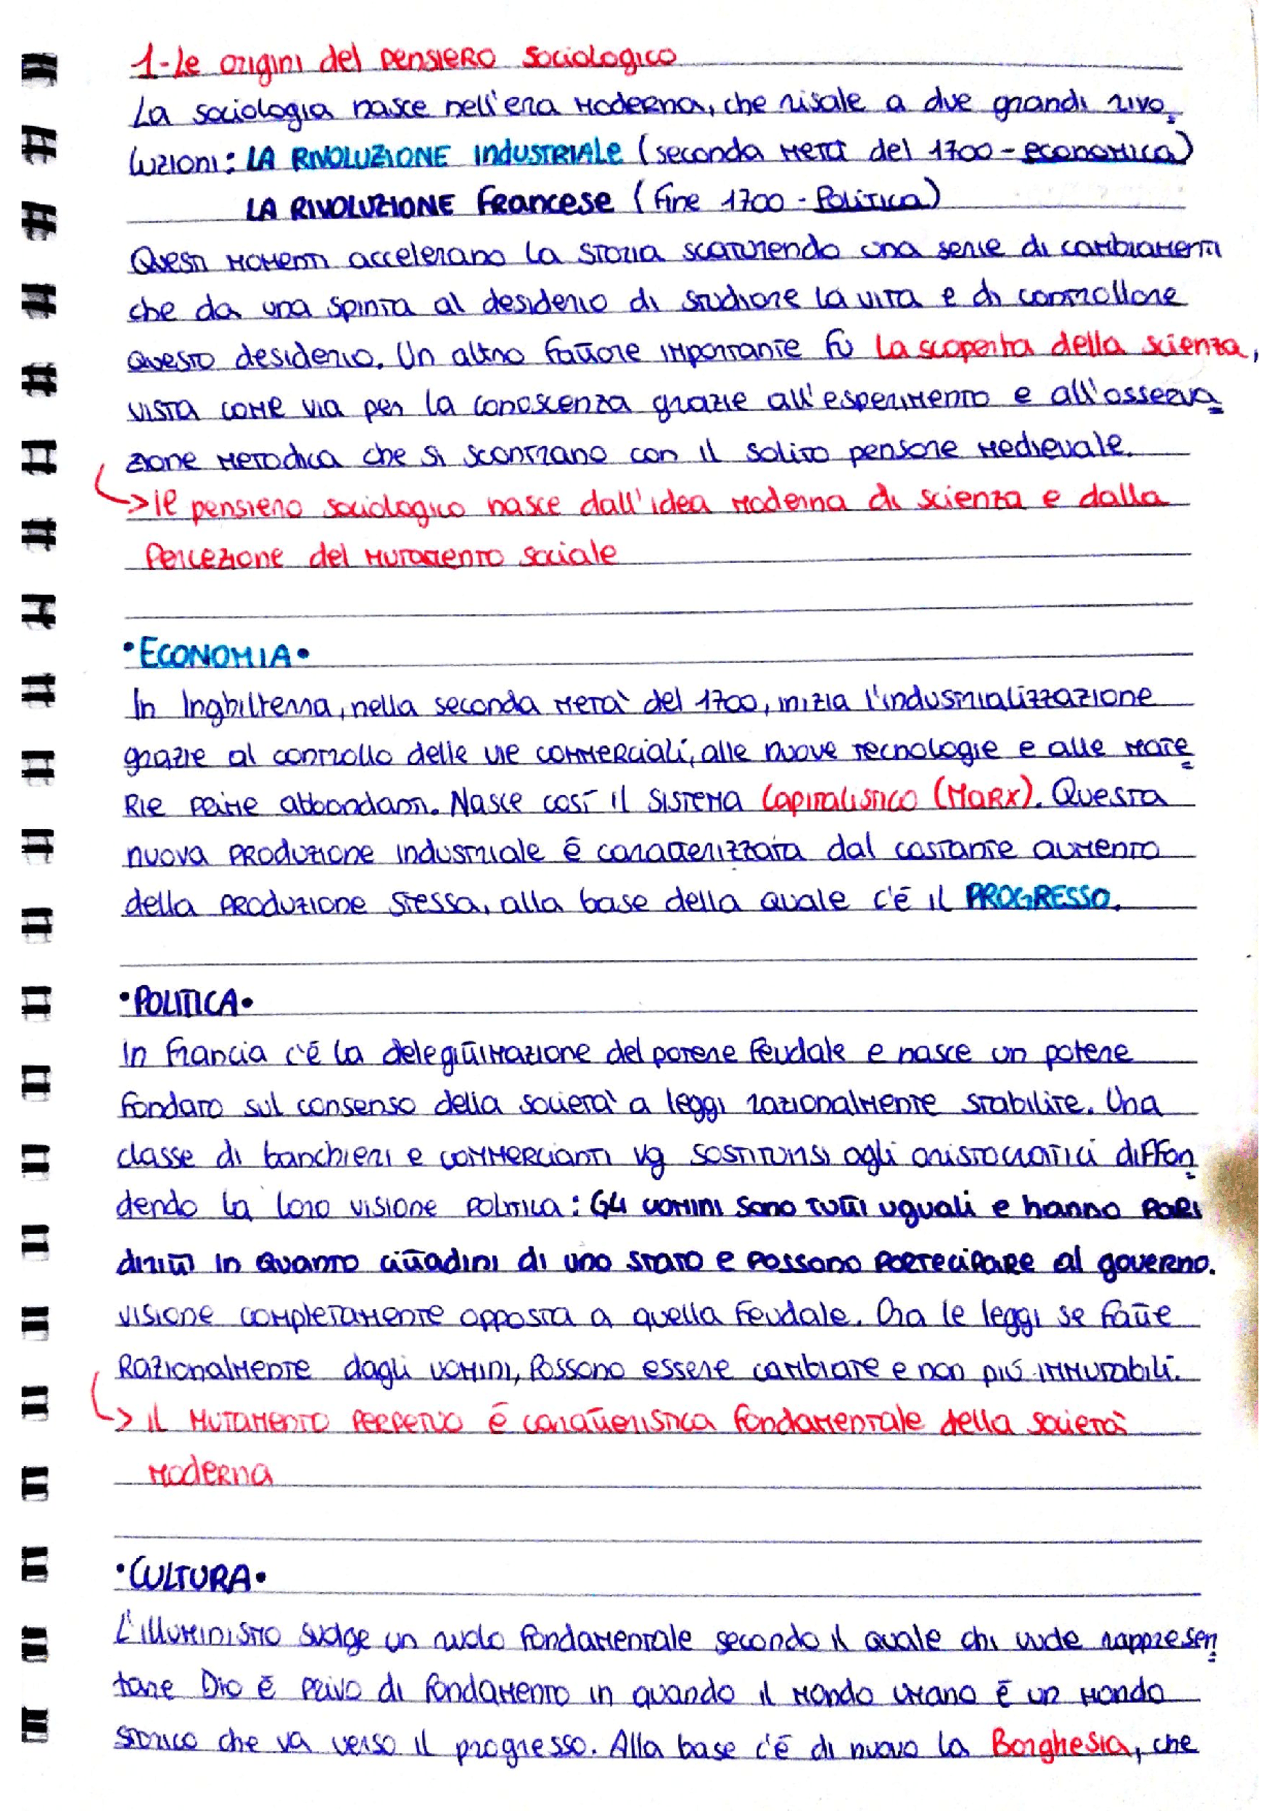 1-Le origini del pensiero sociologico
La sociologia nasce nell'era moderna, che risale a due grandi rivo
luzioni: LA RIVOLUZIONE INDUSTRIALE (seconda metà del 1700 - economica)
LA RIVOLUZIONE Francese (Fine 1700 - Politica)
Questi momenti accelerano la storia scaturendo una serie di cambiamenti
che da una spinta al desiderio di studiare la vita e di controllare
questo desiderio. Un altro fattore importante fù la scoperta della scienza,
vista come via per la conoscenza grazie all'esperimento e all'osserva
zione metodica che si scontrano con il solito pensare medievale.
->il pensiero sociologico nasce dall'idea moderna di scienza e dalla
Percezione del mutamento sociale
•ECONOMIA•
In Inghilterra, nella seconda metà del 1700, inizia l'industrializzazione
grazie al controllo delle vie commerciali, alle nuove tecnologie e alle mate
rie prime abbondanti. Nasce così il sistema Capitalistico (Marx). Questa
nuova produzione industriale è caratterizzata dal costante aumento
della produzione stessa, alla base della quale c'è il PROGRESSO.
•POLITICA•
In Francia c'è la delegittimazione del potere feudale e nasce un potere
fondato sul consenso della società a leggi razionalmente stabilite. Una
classe di banchieri e commercianti va sostituirsi agli aristocratici diffon
dendo la loro visione politica: Gli uomini sono tutti uguali e hanno pari
diritti in quanto cittadini di uno stato e possono partecipare al governo.
visione completamente opposta a quella feudale. Ora le leggi se fatte
Razionalmente dagli uomini, possono essere cambiate e non più immutabili.
-> il mutamento perpetuo è caratteristica fondamentale della società
moderna
•CULTURA•
L'illuminismo svolge un ruolo fondamentale secondo il quale chi vuole rappresen
tare Dio è privo di fondamento in quando il mondo umano è un mondo
storico che va verso il progresso. Alla base c'è di nuovo la Borghesia, che